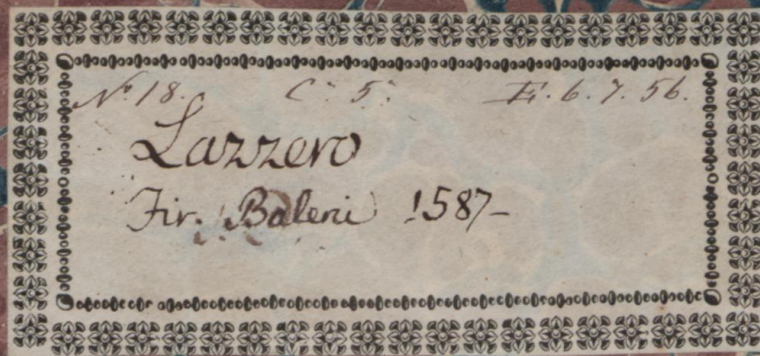 N.º 18. C. 5. E. 6. 7. 56.
Lazzero
Fir. Baleni 1587